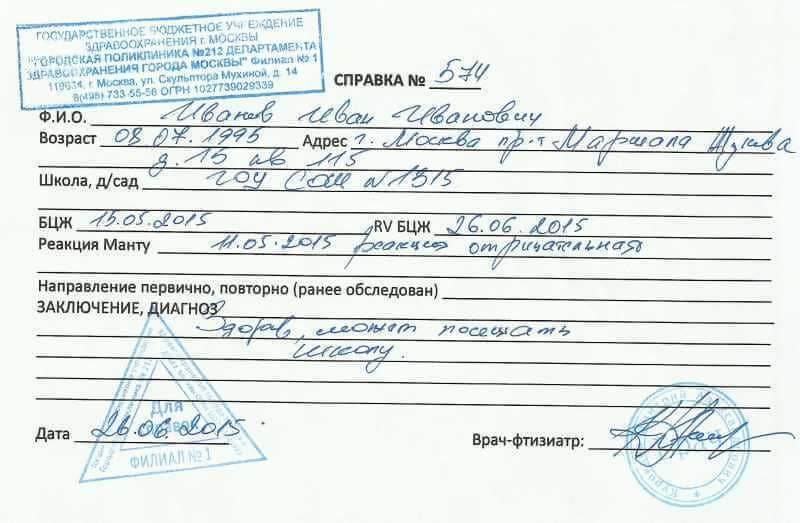 ГОСУДАРСТВЕННОЕ БЮДЖЕТНОЕ УЧРЕЖДЕНИЕ
ЗДРАВООХРАНЕНИЯ г. МОСКВЫ
"ГОРОДСКАЯ ПОЛИКЛИНИКА №212 ДЕПАРТАМЕНТА
ЗДРАВООХРАНЕНИЯ ГОРОДА МОСКВЫ" Филиал № 1
119634, г. Москва, ул. Скульптора Мухиной, д. 14
8(495) 733-55-56 ОГРН 1027739029339
СПРАВКА № 574
Ф.И.О. Иванов Иван Иванович
Возраст 08.07.1995 Адрес г. Москва пр-т Маршала Жукова
д. 15 кв 115
Школа, д/сад ГОУ СОШ N1315
БЦЖ 15.05.2015 RV БЦЖ 26.06.2015
Реакция Манту 11.05.2015 реакция отрицательная
Направление первично, повторно (ранее обследован)
ЗАКЛЮЧЕНИЕ, ДИАГНОЗ
Здоров, может посещать
школу.
Для
ФИЛИАЛ № 1
Дата 26.06.2015
Врач-фтизиатр: